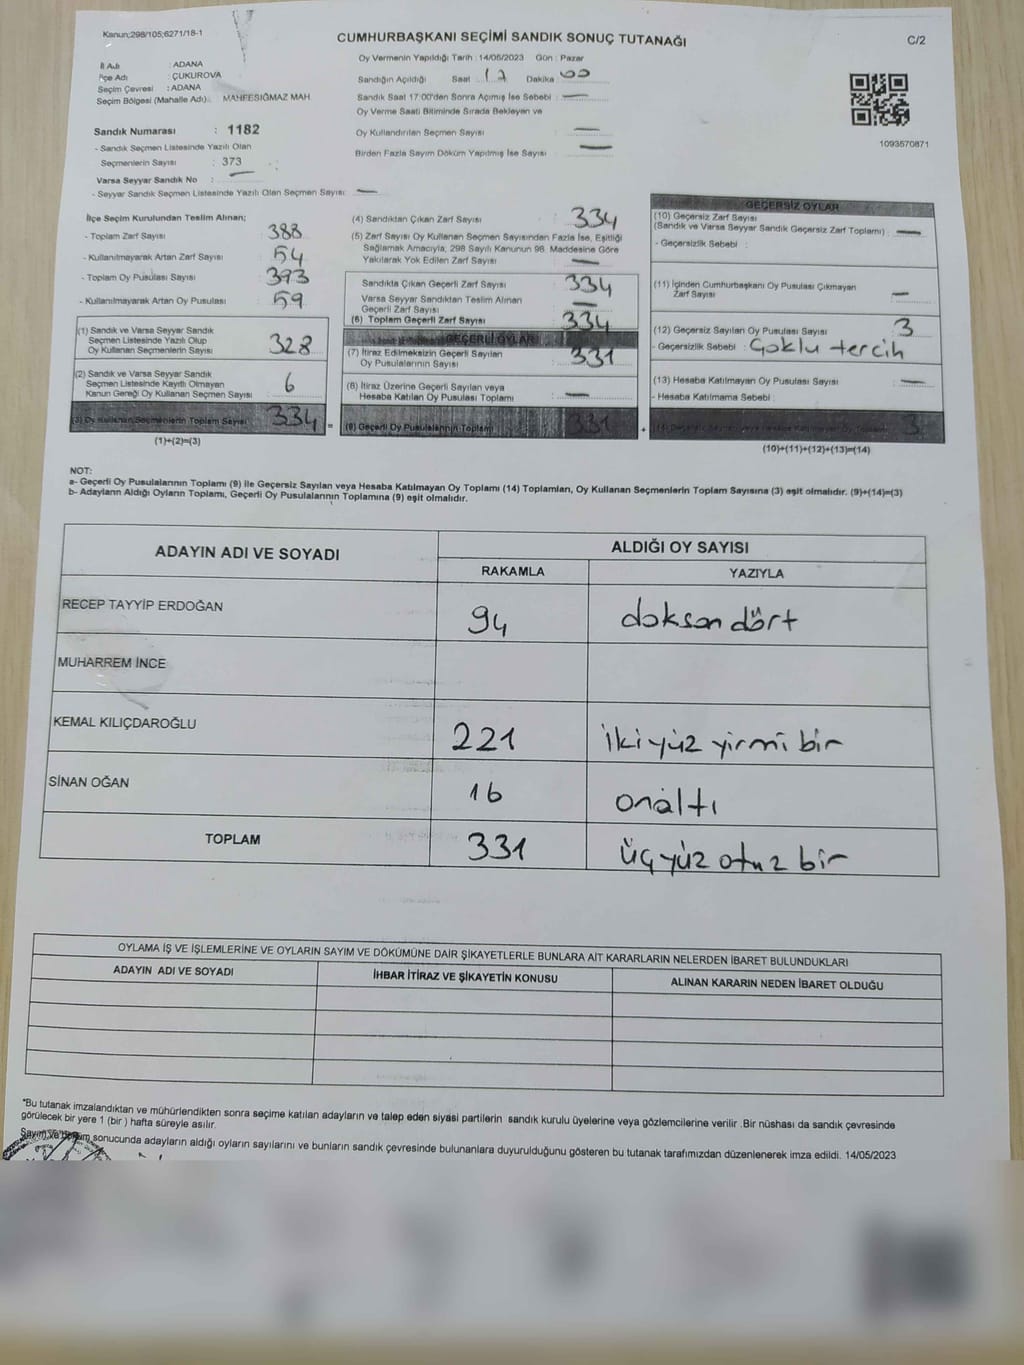 Kanun;298/105;6271/18-1
CUMHURBAŞKANI SEÇİMİ SANDIK SONUÇ TUTANAĞI
C/2
İl Adı : ADANA
İlçe Adı : ÇUKUROVA
Seçim Çevresi : ADANA
Seçim Bölgesi (Mahalle Adı) : MAHFESIĞMAZ MAH.
Oy Vermenin Yapıldığı Tarih : 14/05/2023 Gün : Pazar
Sandığın Açıldığı Saat Dakika 00
Sandık Saat 17:00'den Sonra Açımış İse Sebebi : —
Oy Verme Saati Bitiminde Sırada Bekleyen ve
Oy Kullandırılan Seçmen Sayısı —
Birden Fazla Sayım Döküm Yapılmış İse Sayısı —
1093570871
Sandık Numarası : 1182
- Sandık Seçmen Listesinde Yazılı Olan
Seçmenlerin Sayısı : 373
Varsa Seyyar Sandık No : —
- Seyyar Sandık Listesinde Yazılı Olan Seçmen Sayısı: —
İlçe Seçim Kurulundan Teslim Alınan;
- Toplam Zarf Sayısı : 388
- Kullanılmayarak Artan Zarf Sayısı : 54
- Toplam Oy Pusulası Sayısı : 393
- Kullanılmayarak Artan Oy Pusulası : 59
(1) Sandık ve Varsa Seyyar Sandık
Seçmen Listesinde Yazılı Olup
Oy Kullanan Seçmenlerin Sayısı : 328
(2) Sandık ve Varsa Seyyar Sandık
Seçmen Listesinde Kayıtlı Olmayan
Kanun Gereği Oy Kullanan Seçmen Sayısı : 6
(3) Oy Kullanan Seçmenlerin Toplam Sayısı : 334
(1)+(2)=(3)
(4) Sandıktan Çıkan Zarf Sayısı : 334
(5) Zarf Sayısı Oy Kullanan Seçmen Sayısından Fazla İse, Eşitliği
Sağlamak Amacıyla, 298 Sayılı Kanunun 98. Maddesine Göre
Yakılarak Yok Edilen Zarf Sayısı : —
Sandıkta Çıkan Geçerli Zarf Sayısı : 334
Varsa Seyyar Sandıktan Teslim Alınan
Geçerli Zarf Sayısı : —
(6) Toplam Geçerli Zarf Sayısı : 334
GEÇERLİ OYLAR
(7) İtiraz Edilmeksizin Geçerli Sayılan
Oy Pusulalarının Sayısı : 331
(8) İtiraz Üzerine Geçerli Sayılan veya
Hesaba Katılan Oy Pusulası Toplamı : —
= (9) Geçerli Oy Pusulalarının Toplamı 331
GEÇERSİZ OYLAR
(10) Geçersiz Zarf Sayısı
(Sandık ve Varsa Seyyar Sandık Geçersiz Zarf Toplamı) : —
- Geçersizlik Sebebi :
(11) İçinden Cumhurbaşkanı Oy Pusulası Çıkmayan
Zarf Sayısı : —
(12) Geçersiz Sayılan Oy Pusulası Sayısı : 3
- Geçersizlik Sebebi : Çoklu tercih
(13) Hesaba Katılmayan Oy Pusulası Sayısı : —
- Hesaba Katılmama Sebebi :
+ 3
(10)+(11)+(12)+(13)=(14)
NOT:
a- Geçerli Oy Pusulalarının Toplamı (9) ile Geçersiz Sayılan veya Hesaba Katılmayan Oy Toplamı (14) Toplamları, Oy Kullanan Seçmenlerin Toplam Sayısına (3) eşit olmalıdır. (9)+(14)=(3)
b- Adayların Aldığı Oyların Toplamı, Geçerli Oy Pusulalarının Toplamına (9) eşit olmalıdır.
ADAYIN ADI VE SOYADI
ALDIĞI OY SAYISI
RAKAMLA YAZIYLA
RECEP TAYYİP ERDOĞAN 94 doksan dört
MUHARREM İNCE
KEMAL KILIÇDAROĞLU 221 iki yüz yirmi bir
SİNAN OĞAN 16 onaltı
TOPLAM 331 üç yüz otuz bir
OYLAMA İŞ VE İŞLEMLERİNE VE OYLARIN SAYIM VE DÖKÜMÜNE DAİR ŞİKAYETLERLE BUNLARA AİT KARARLARIN NELERDEN İBARET BULUNDUKLARI
ADAYIN ADI VE SOYADI İHBAR İTİRAZ VE ŞİKAYETİN KONUSU ALINAN KARARIN NEDEN İBARET OLDUĞU
*Bu tutanak imzalandıktan ve mühürlendikten sonra seçime katılan adayların ve talep eden siyasi partilerin sandık kurulu üyelerine veya gözlemcilerine verilir .Bir nüshası da sandık çevresinde
görülecek bir yere 1 (bir ) hafta süreyle asılır.
Sayım ve döküm sonucunda adayların aldığı oyların sayılarını ve bunların sandık çevresinde bulunanlara duyurulduğunu gösteren bu tutanak tarafımızdan düzenlenerek imza edildi. 14/05/2023